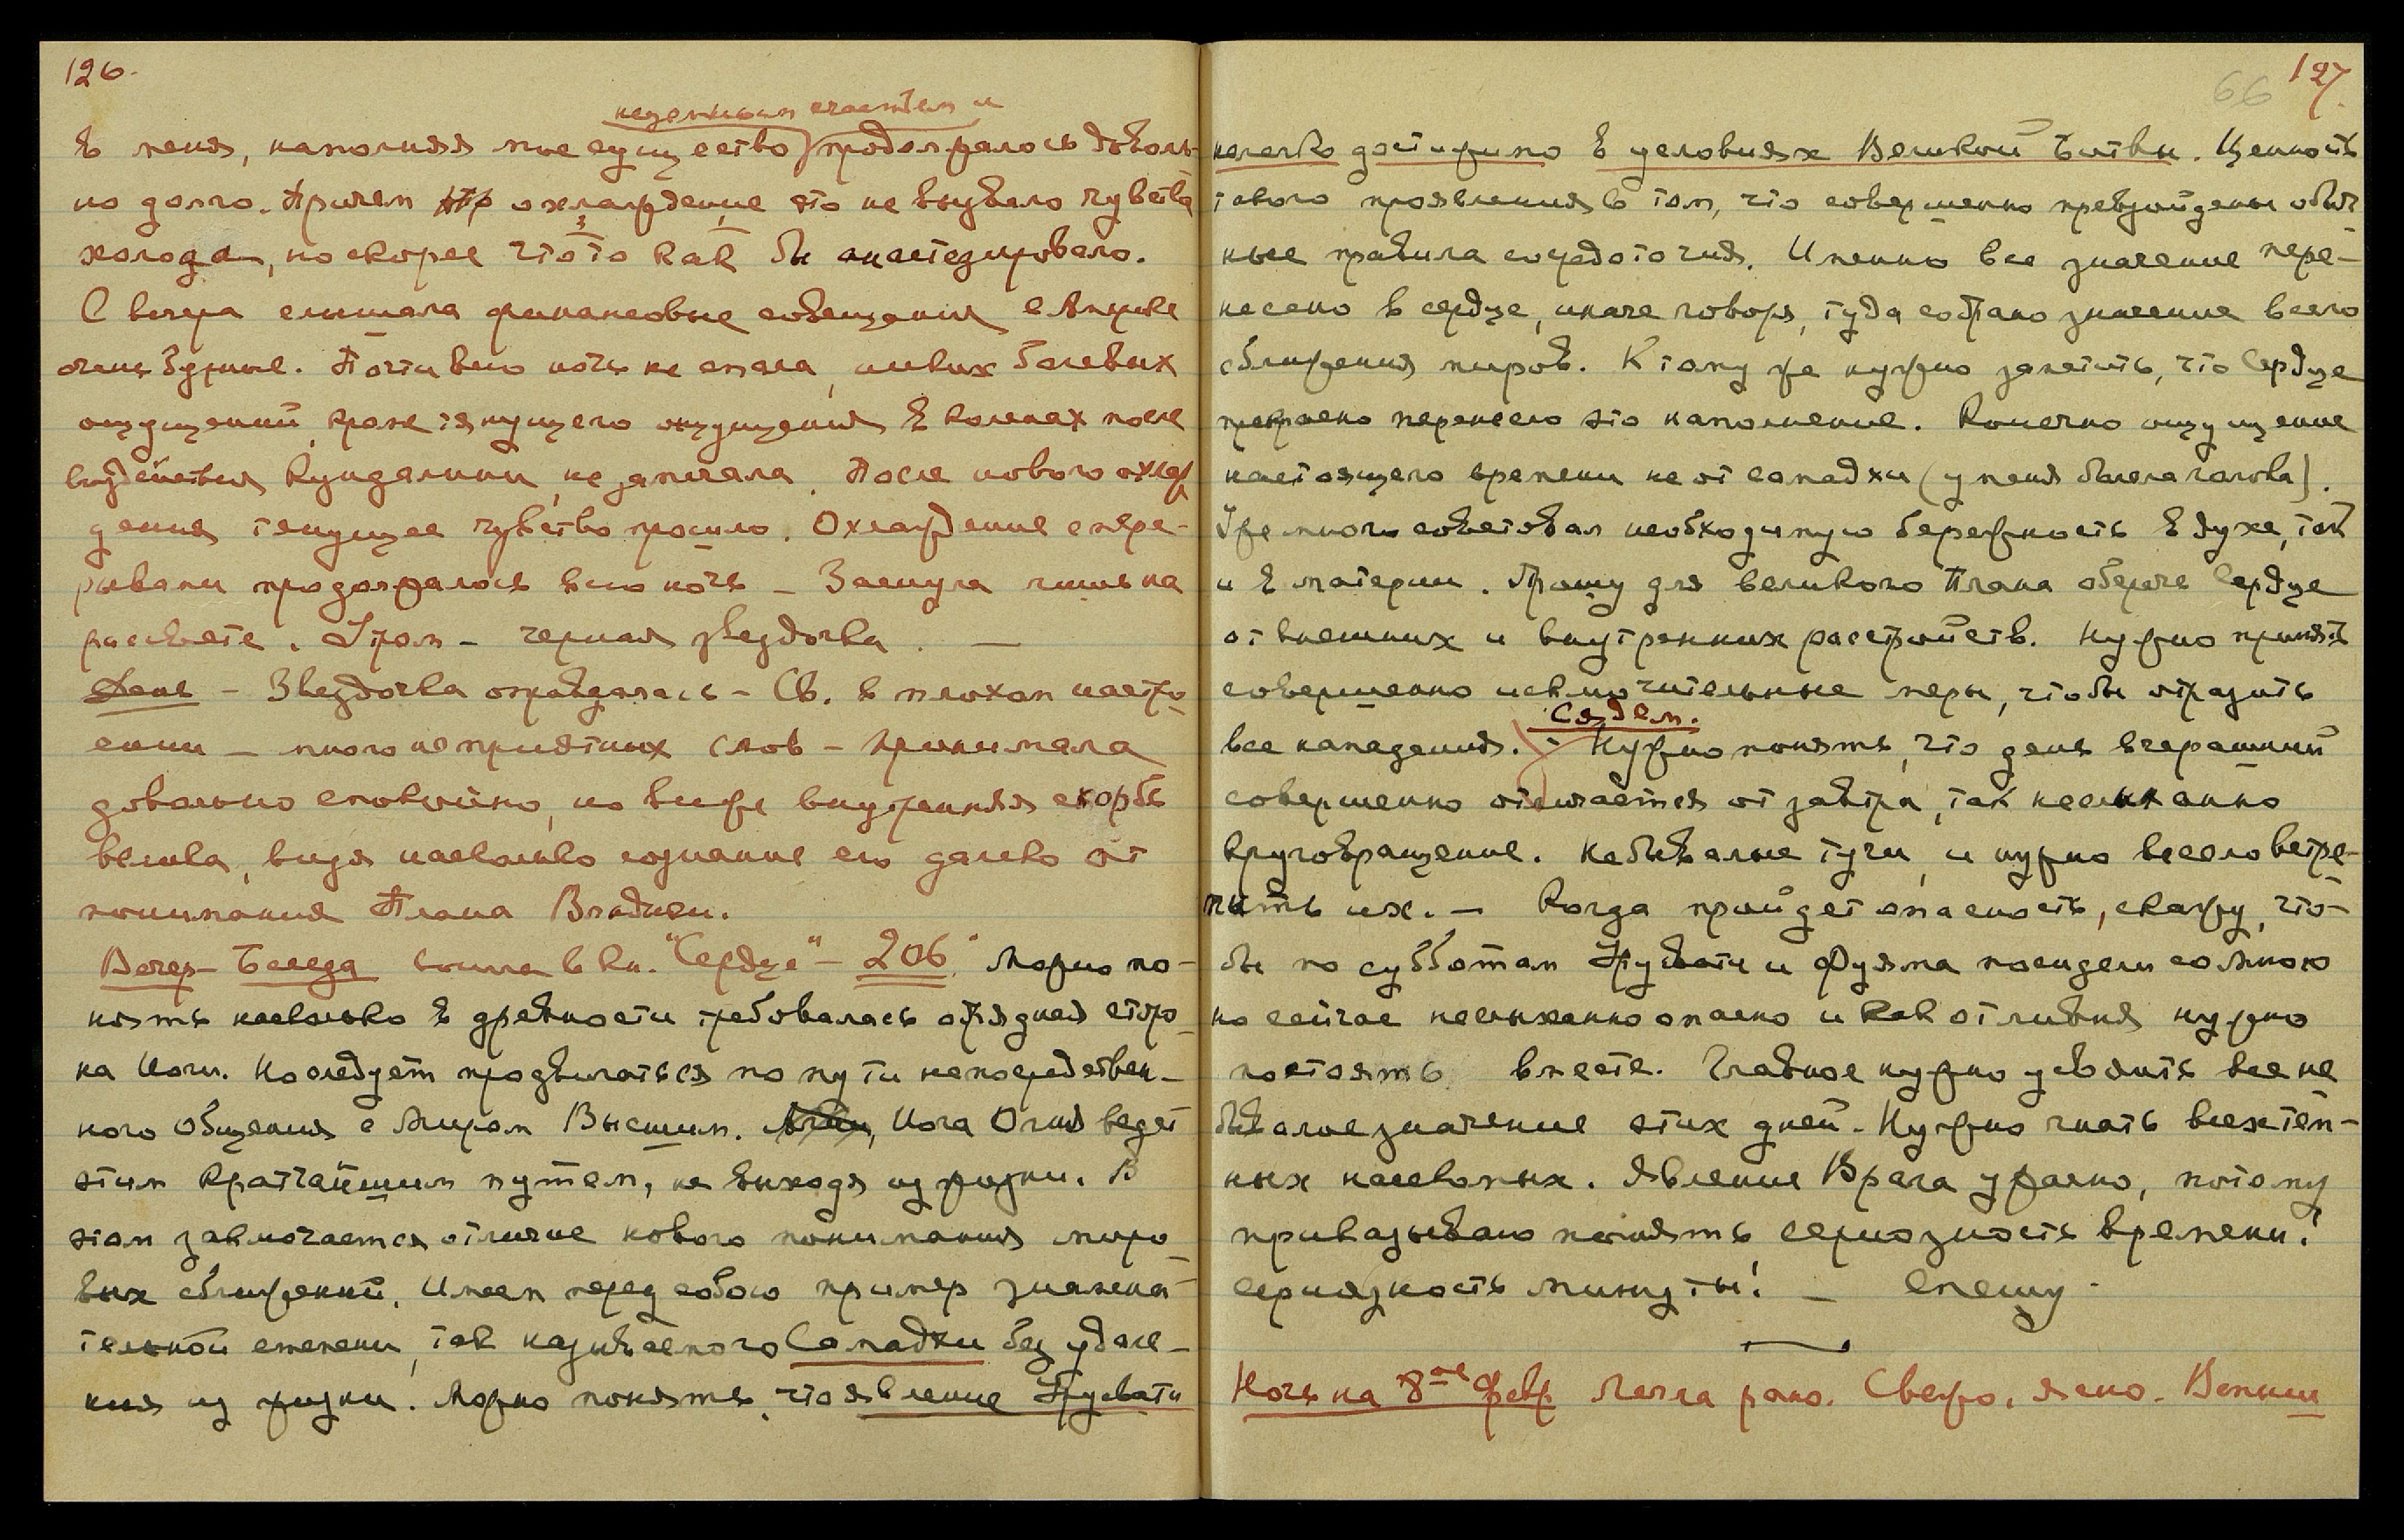 126.
неземным счастьем и
в меня, наполняя мое существо продолжалось доволь-
но долго. Причем охлаждение это не вызвало чувства
холода, но скорее что-то как бы анастезировало.
С вечера слышала финансовые совещания в Америке
очень бурные. Почти всю ночь не спала, никаких болевых
ощущений, кроме тянущего ощущения в коленах после
воздействия Кундалини, не замечала. После нового охлаж
дения тянущее чувство прошло. Охлаждение с пере-
рывами продолжалось всю ночь – Заснула лишь на
рассвете. Утром – черная звездочка. —
День – Звездочка оправдалась – Св. в плохом настро
ении – много неприятных слов – Принимала
довольно спокойно, но внутренняя скорбь
велика, видя насколько сознание его далеко от
понимания Плана Владыки.
Вечер – Беседа вошла в кн. "Сердце" – 206. Можно по-
нять насколько в древности требовалась обрядная сторо
на Йоги. Но следует продвигаться по пути непосредствен-
ного общения с Миром Высшим. Йога Огня ведет
этим кратчайшим путем, не выходя из жизни. В
этом заключается отличие нового понимания миро
вых сближений. Имеем перед собою пример знамена-
тельной степени, так называемого Самадхи без удале-
ния из жизни. Можно понять, что явление Урусвати
66 127.
нелегко достижимо в условиях Великой Битвы. Ценность
такого проявления в том, что совершенно превзойдены обыч
ные правила сосредоточия. Именно все значение пере-
несено в сердце, иначе говоря, туда собрано значение всего
сближения миров. К тому же нужно заметить, что Сердце
прекрасно перенесло это наполнение. Конечно ощущение
настоящего времени не от самадхи (у меня болела голова).
Уже много советовал необходимую бережность в духе, так
и в материи. Прошу для великого Плана обереч Сердце
от внешних и внутренних расстройств. Нужно принять
совершенно исключительные меры, чтобы отразить
Сядем.
все нападения. – Нужно понять, что день вчерашний
совершенно отличается от завтра, так неслыханно
круговращение. Небывалые тучи, и нужно весело встре-
чать их. – Когда пройдет опасность, скажу, что-
бы по субботам Урусвати и Фуяма посидели со Мною
но сейчас неслыханно опасно и как от ливня нужно
постоять вместе. Главное нужно усвоить все не
бывалое значение этих дней. Нужно гнать всех тем-
ных насекомых. Явление Врага ужасно, потому
приказываю понять сериозность времени!
сериозность минуты! – Спешу.
Ночь на 8ое Февр Легла рано. Свежо, ясно.